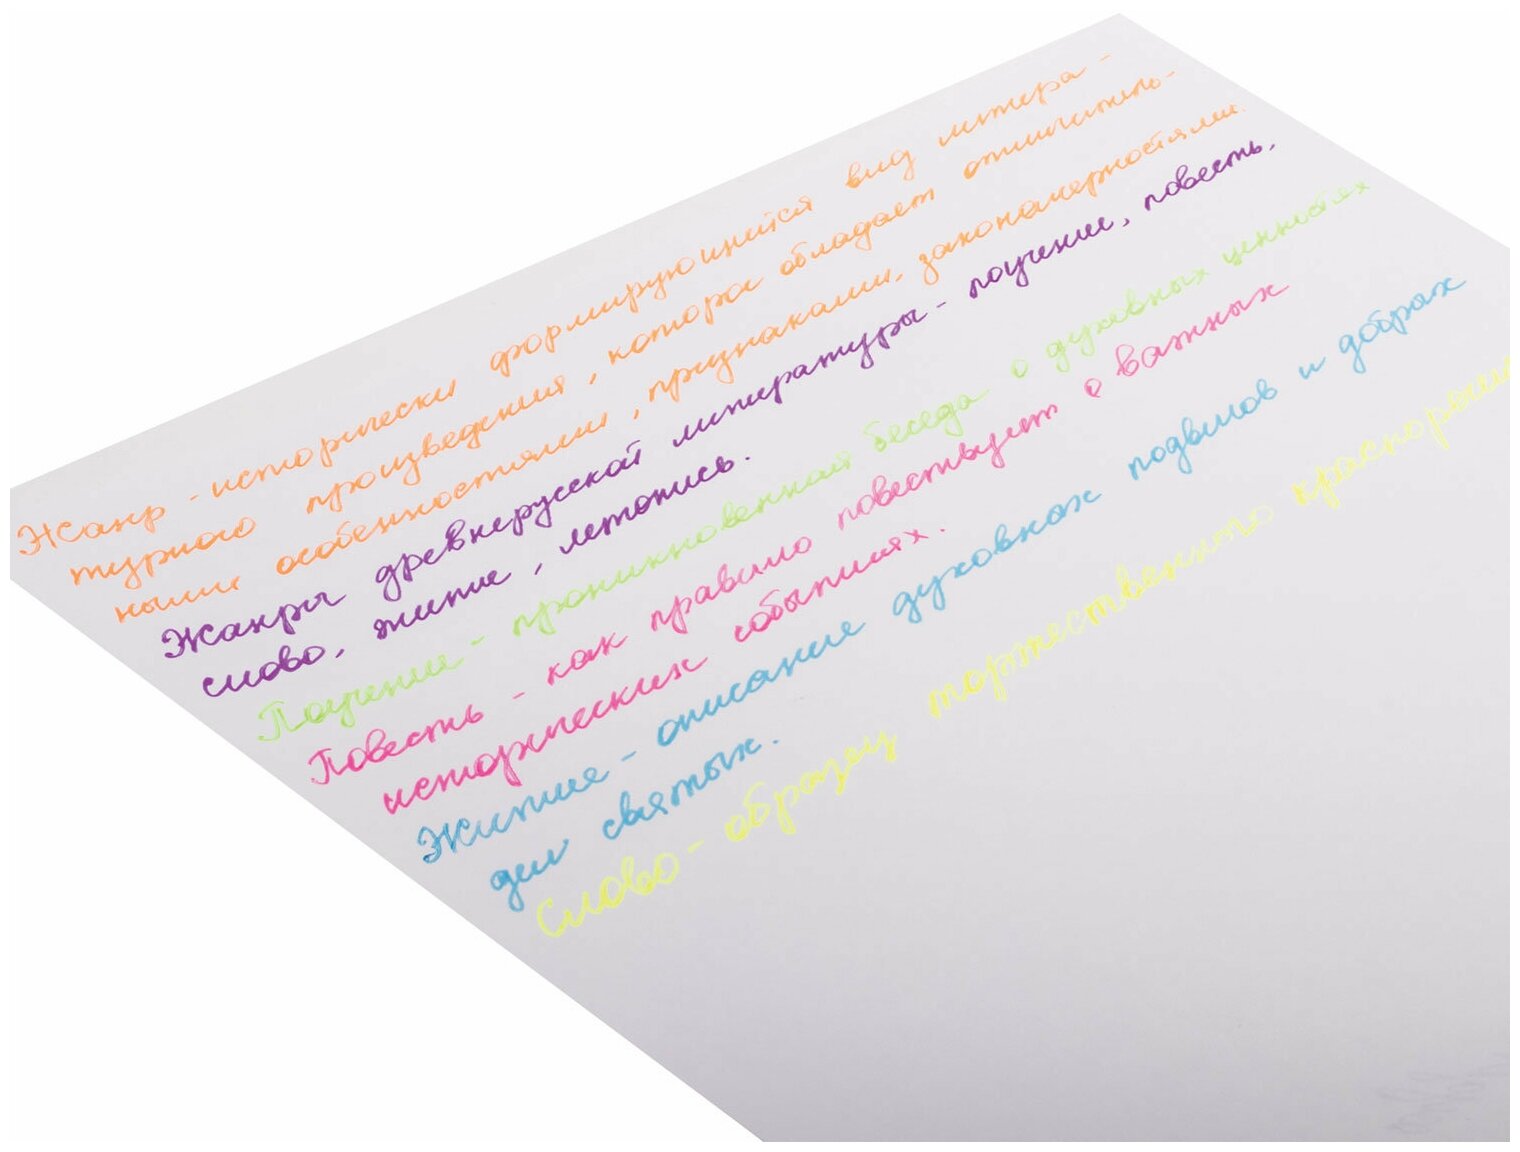 Жанр - исторически формирующийся вид литера-
турного произведения, которое обладает отличитель-
ными особенностями, признаками, закономерностями.
Жанры древнерусской литературы - поучение, повесть,
слово, житие, летопись.
Поучение - проникновенная беседа о духовных ценностях
Повесть - как правило повествует о важных
исторических событиях.
Житие - описание духовных подвигов и добрых
дел святых.
Слово - образец торжественного красноречия